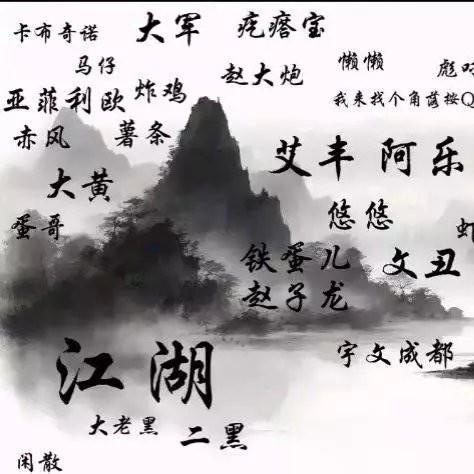 卡布奇诺
大军
疙瘩宝
马仔
懒懒
彪
赵大炮
炸鸡
亚菲利欧
我来找个角落按Q
赤风
薯条
艾丰
阿乐
大黄
悠悠
蛋哥
虾
铁蛋儿
文丑
赵子龙
宇文成都
江湖
大老黑
二黑
闲散